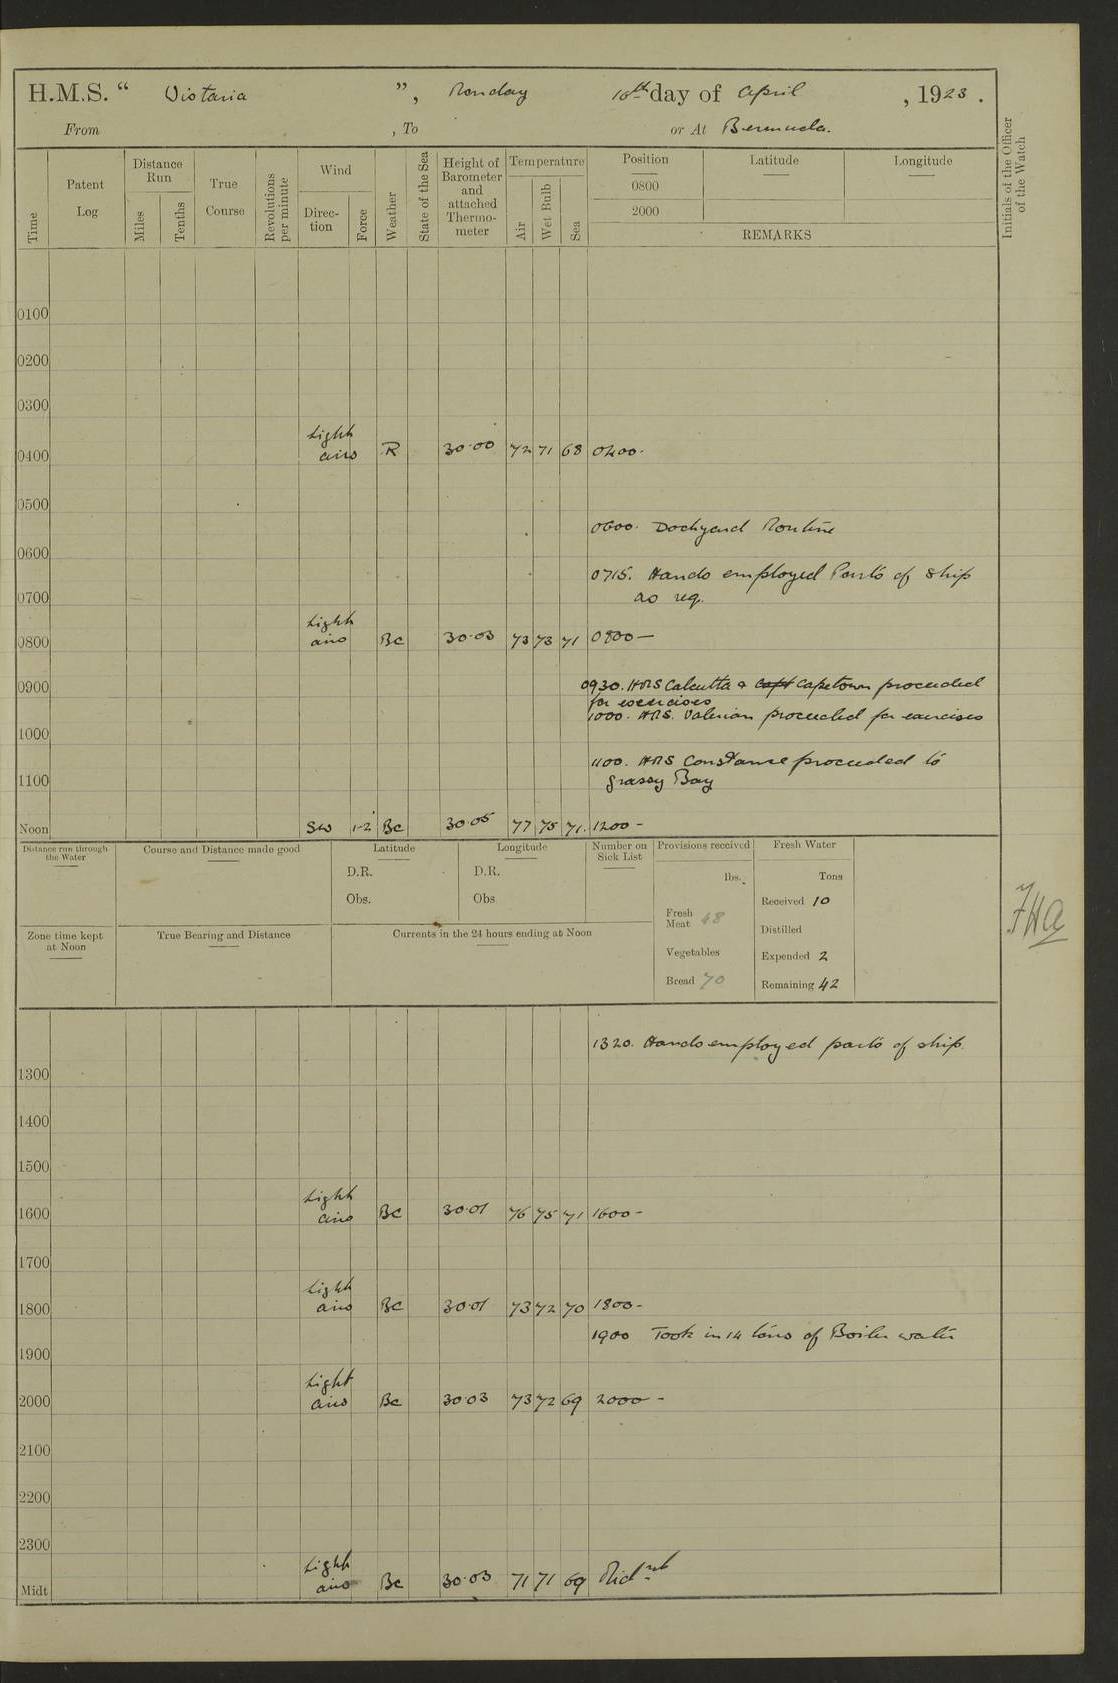 H.M.S. " Wistaria ", Monday 16th day of April, 1923.
From , To or At Bermuda.
Time
Patent Log
Distance Run
Miles
Tenths
True Course
Revolutions per minute
Wind
Direc-tion
Force
Weather
State of the Sea
Height of Barometer and attached Thermo-meter
Temperature
Air
Wet Bulb
Sea
Position
Latitude
Longitude
0800
2000
REMARKS
Initials of the Officer of the Watch
0100
0200
0300
0400 Light airs R 30.00 72 71 68 0400.
0500
0600. Dockyard Routine
0600
0715. Hands employed Parts of ship
0700
as req.
0800 Light airs Bc 30.03 73 73 71 0800—
0900 0930. HMS Calcutta & Capt Capetown proceeded
for exercises
1000. HMS. Valerian proceeded for exercises
1000
1100. HMS Constance proceeded to
1100
Grassy Bay
Noon SW 1-2 Bc 30.05 77 75 71. 1200 -
Distance run through the Water
Course and Distance made good
Latitude
D.R.
Obs.
Longitude
D.R.
Obs
Number on Sick List
Provisions received
lbs.
Fresh Meat 48
Vegetables
Bread 70
Fresh Water
Tons
Received 10
Distilled
Expended 2
Remaining 42
Zone time kept at Noon
True Bearing and Distance
Currents in the 24 hours ending at Noon
1320. Hands employed parts of ship.
1300
1400
1500
1600 Light airs Bc 30.01 76 75 71 1600 -
1700
1800 Light airs Bc 30.01 73 72 70 1800 -
1900 Took in 14 tons of Boiler water
1900
2000 Light airs Bc 30.03 73 72 69 2000 -
2100
2200
2300
Midt Light airs Bc 30.03 71 71 69 Midnt